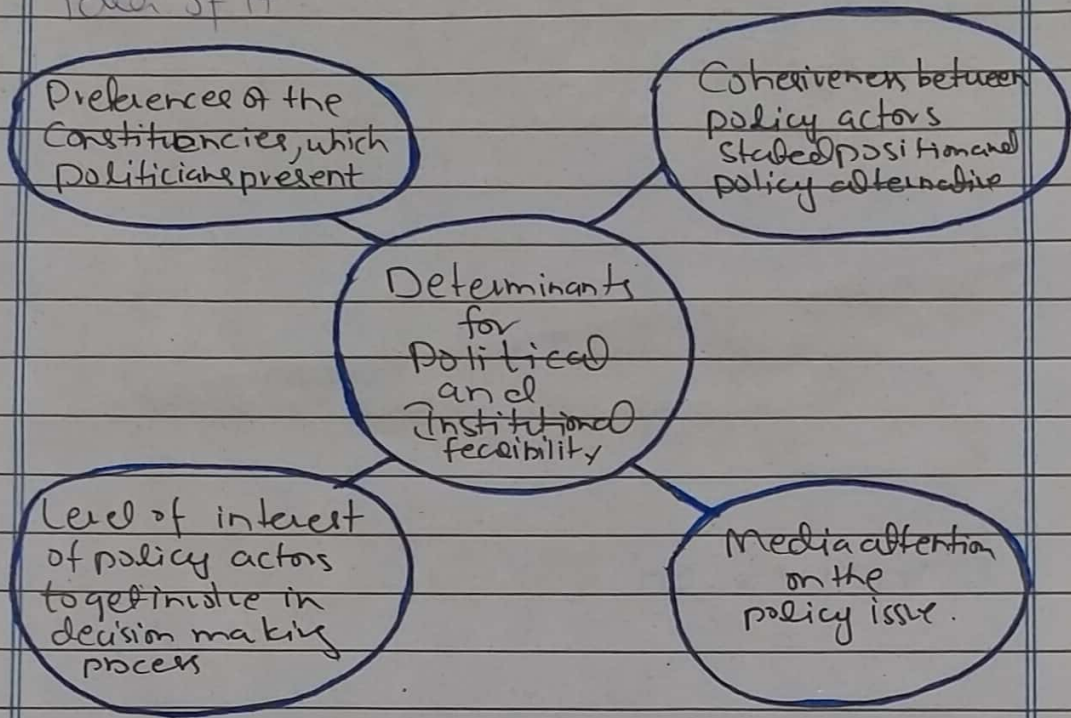 Preferences of the
Constituencies, which
politicians present
Cohesiveness between
policy actors
stated position and
policy alternative
Determinants
for
Political
and
Institutional
feasibility
Level of interest
of policy actors
to get involve in
decision making
process
Media attention
on the
policy issue.